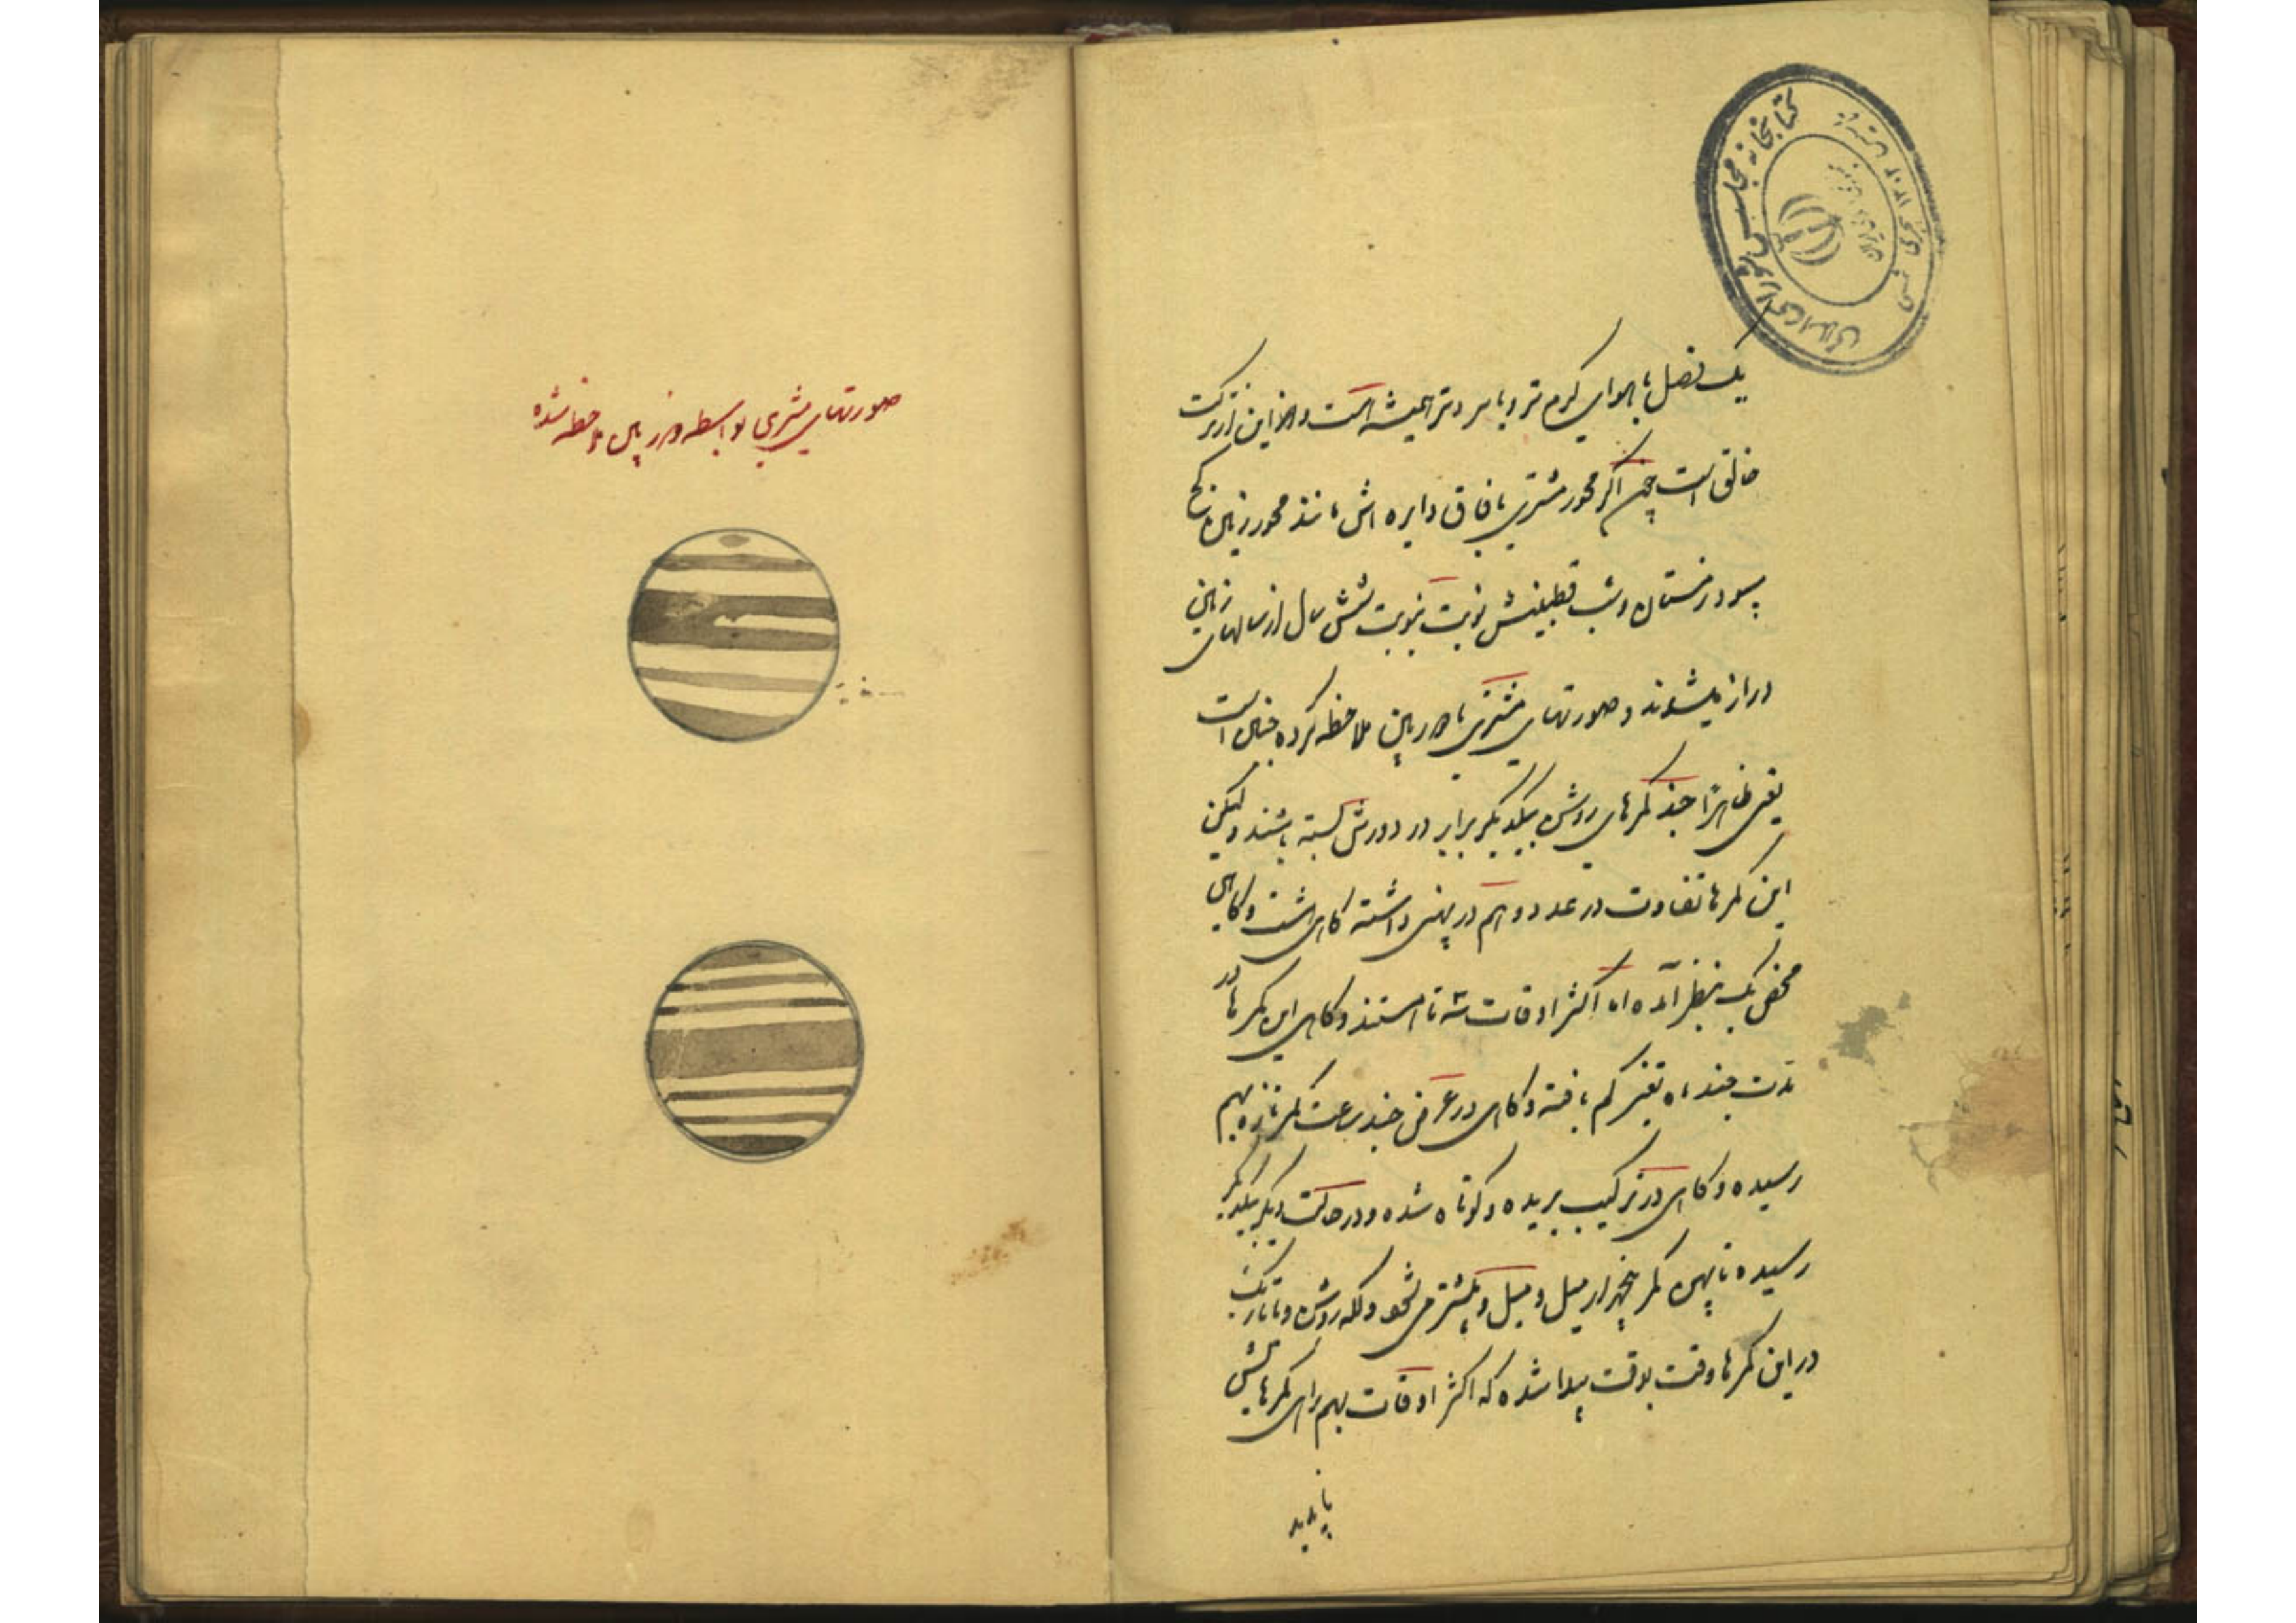 کتابخانه مجلس شورای اسلامی
یک فصل با هوای گرم تر و یا سردتر همیشه است و از این
خالق است چه اگر محور مشتری بافاق دایره اش مانند محور زمین کج
میبود زمستان و شب قطبینش نوبت بنوبت شش سال از سالهای زمین
دراز میشوند و صورتهای مشتری با دوربین ملاحظه کرده چنان است
یعنی ظاهرا چند کمرهای روشن بیکدیگر برابر در دورش بسته باشند ولیکن
این کمرها تفاوت در عدد و هم در پهنی داشته گاهی هشت و گاهی
محض یک بنظر آمده اما اکثر اوقات سه تا هستند و گاهی این کمرها در
مدت چند ماه تغیر کم یافته و گاهی در عرض چند ساعت کمر تازه بهم
رسیده و گاهی در ترکیب بریده و کوتاه شده و در حالت دیگر بیکدیگر
رسیده تا پهن کمر پنجهزار میل و میل و بیشتر می شود و لکه روشن و یا تاریک
در این کمرها وقت بوقت پیدا شده که اکثر اوقات بهمرای کمرهایش
ناپدید
صورتهای مشتری بواسطه دوربین ملاحظه شده